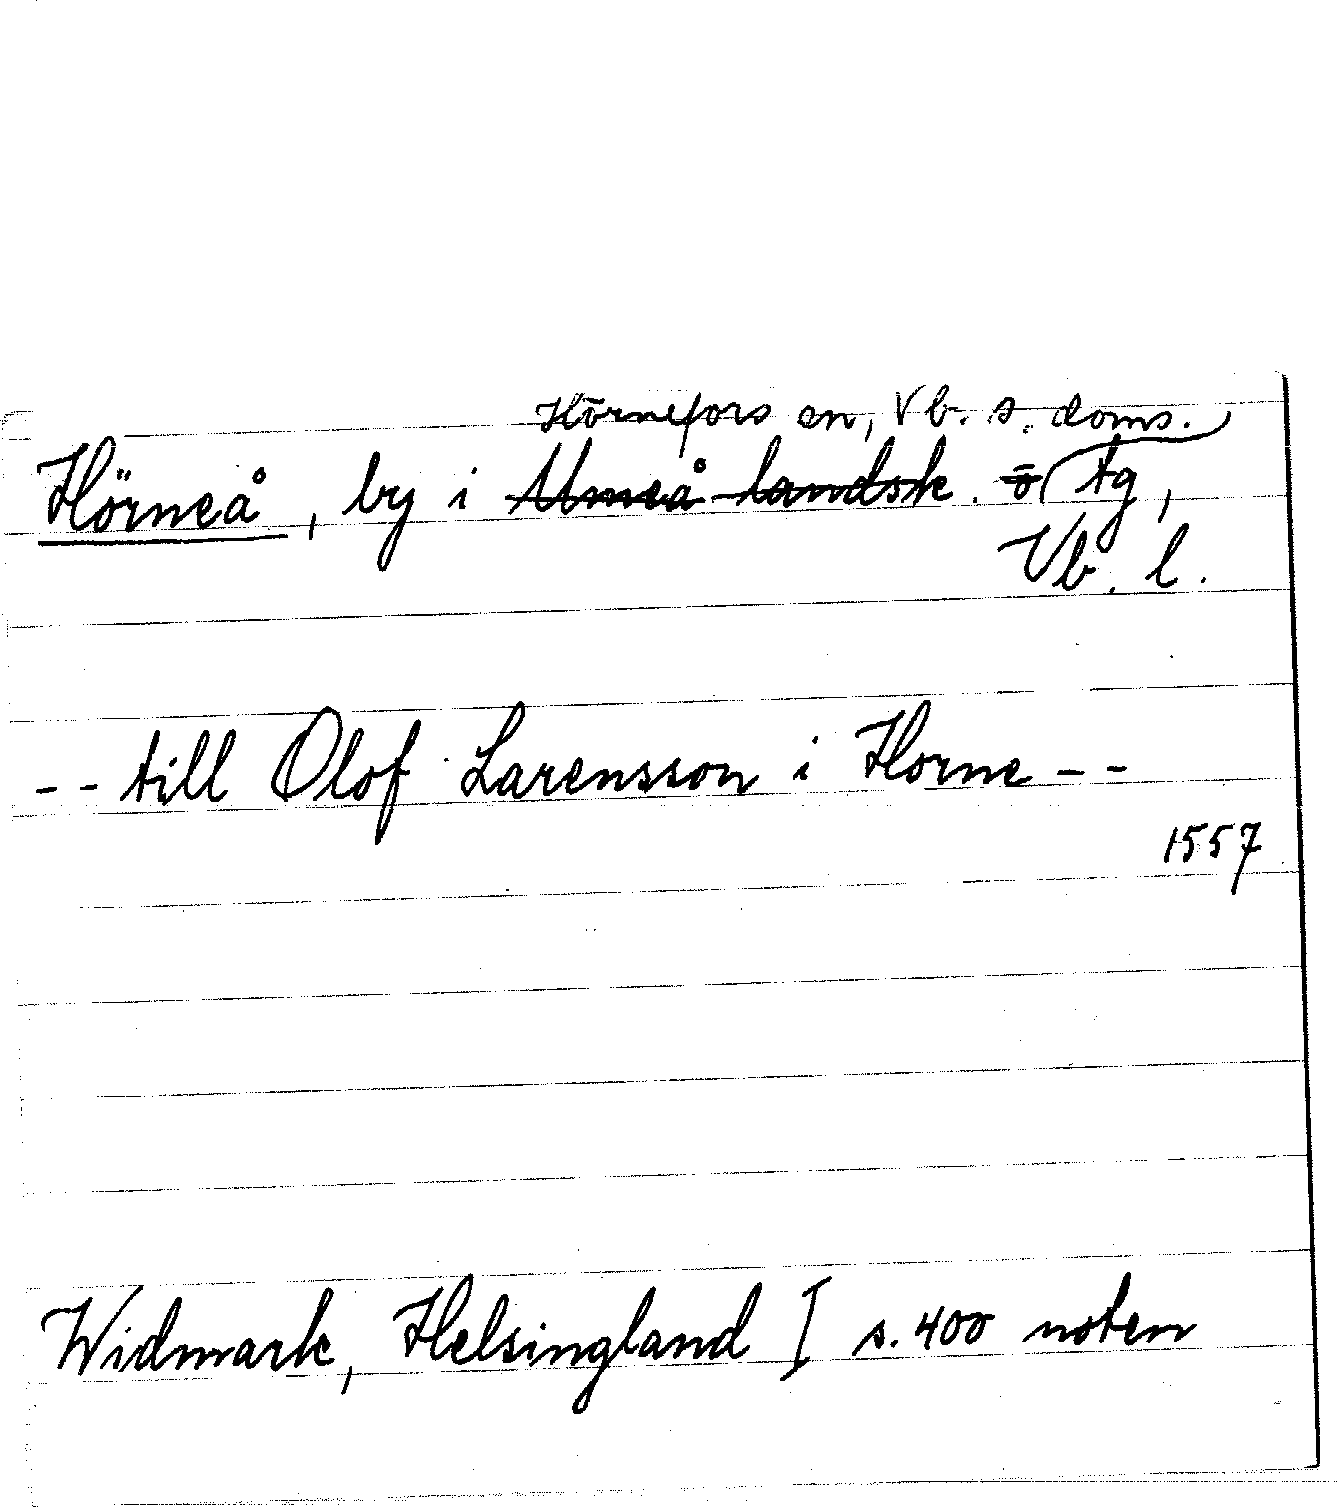 Hörnefors sn, Vb. s. doms.
Hörneå, by i Umeå landsk. o tg,
Vb. l.
-- till Olof Larensson i Horne --
1557
Widmark, Helsingland I s. 400 noten